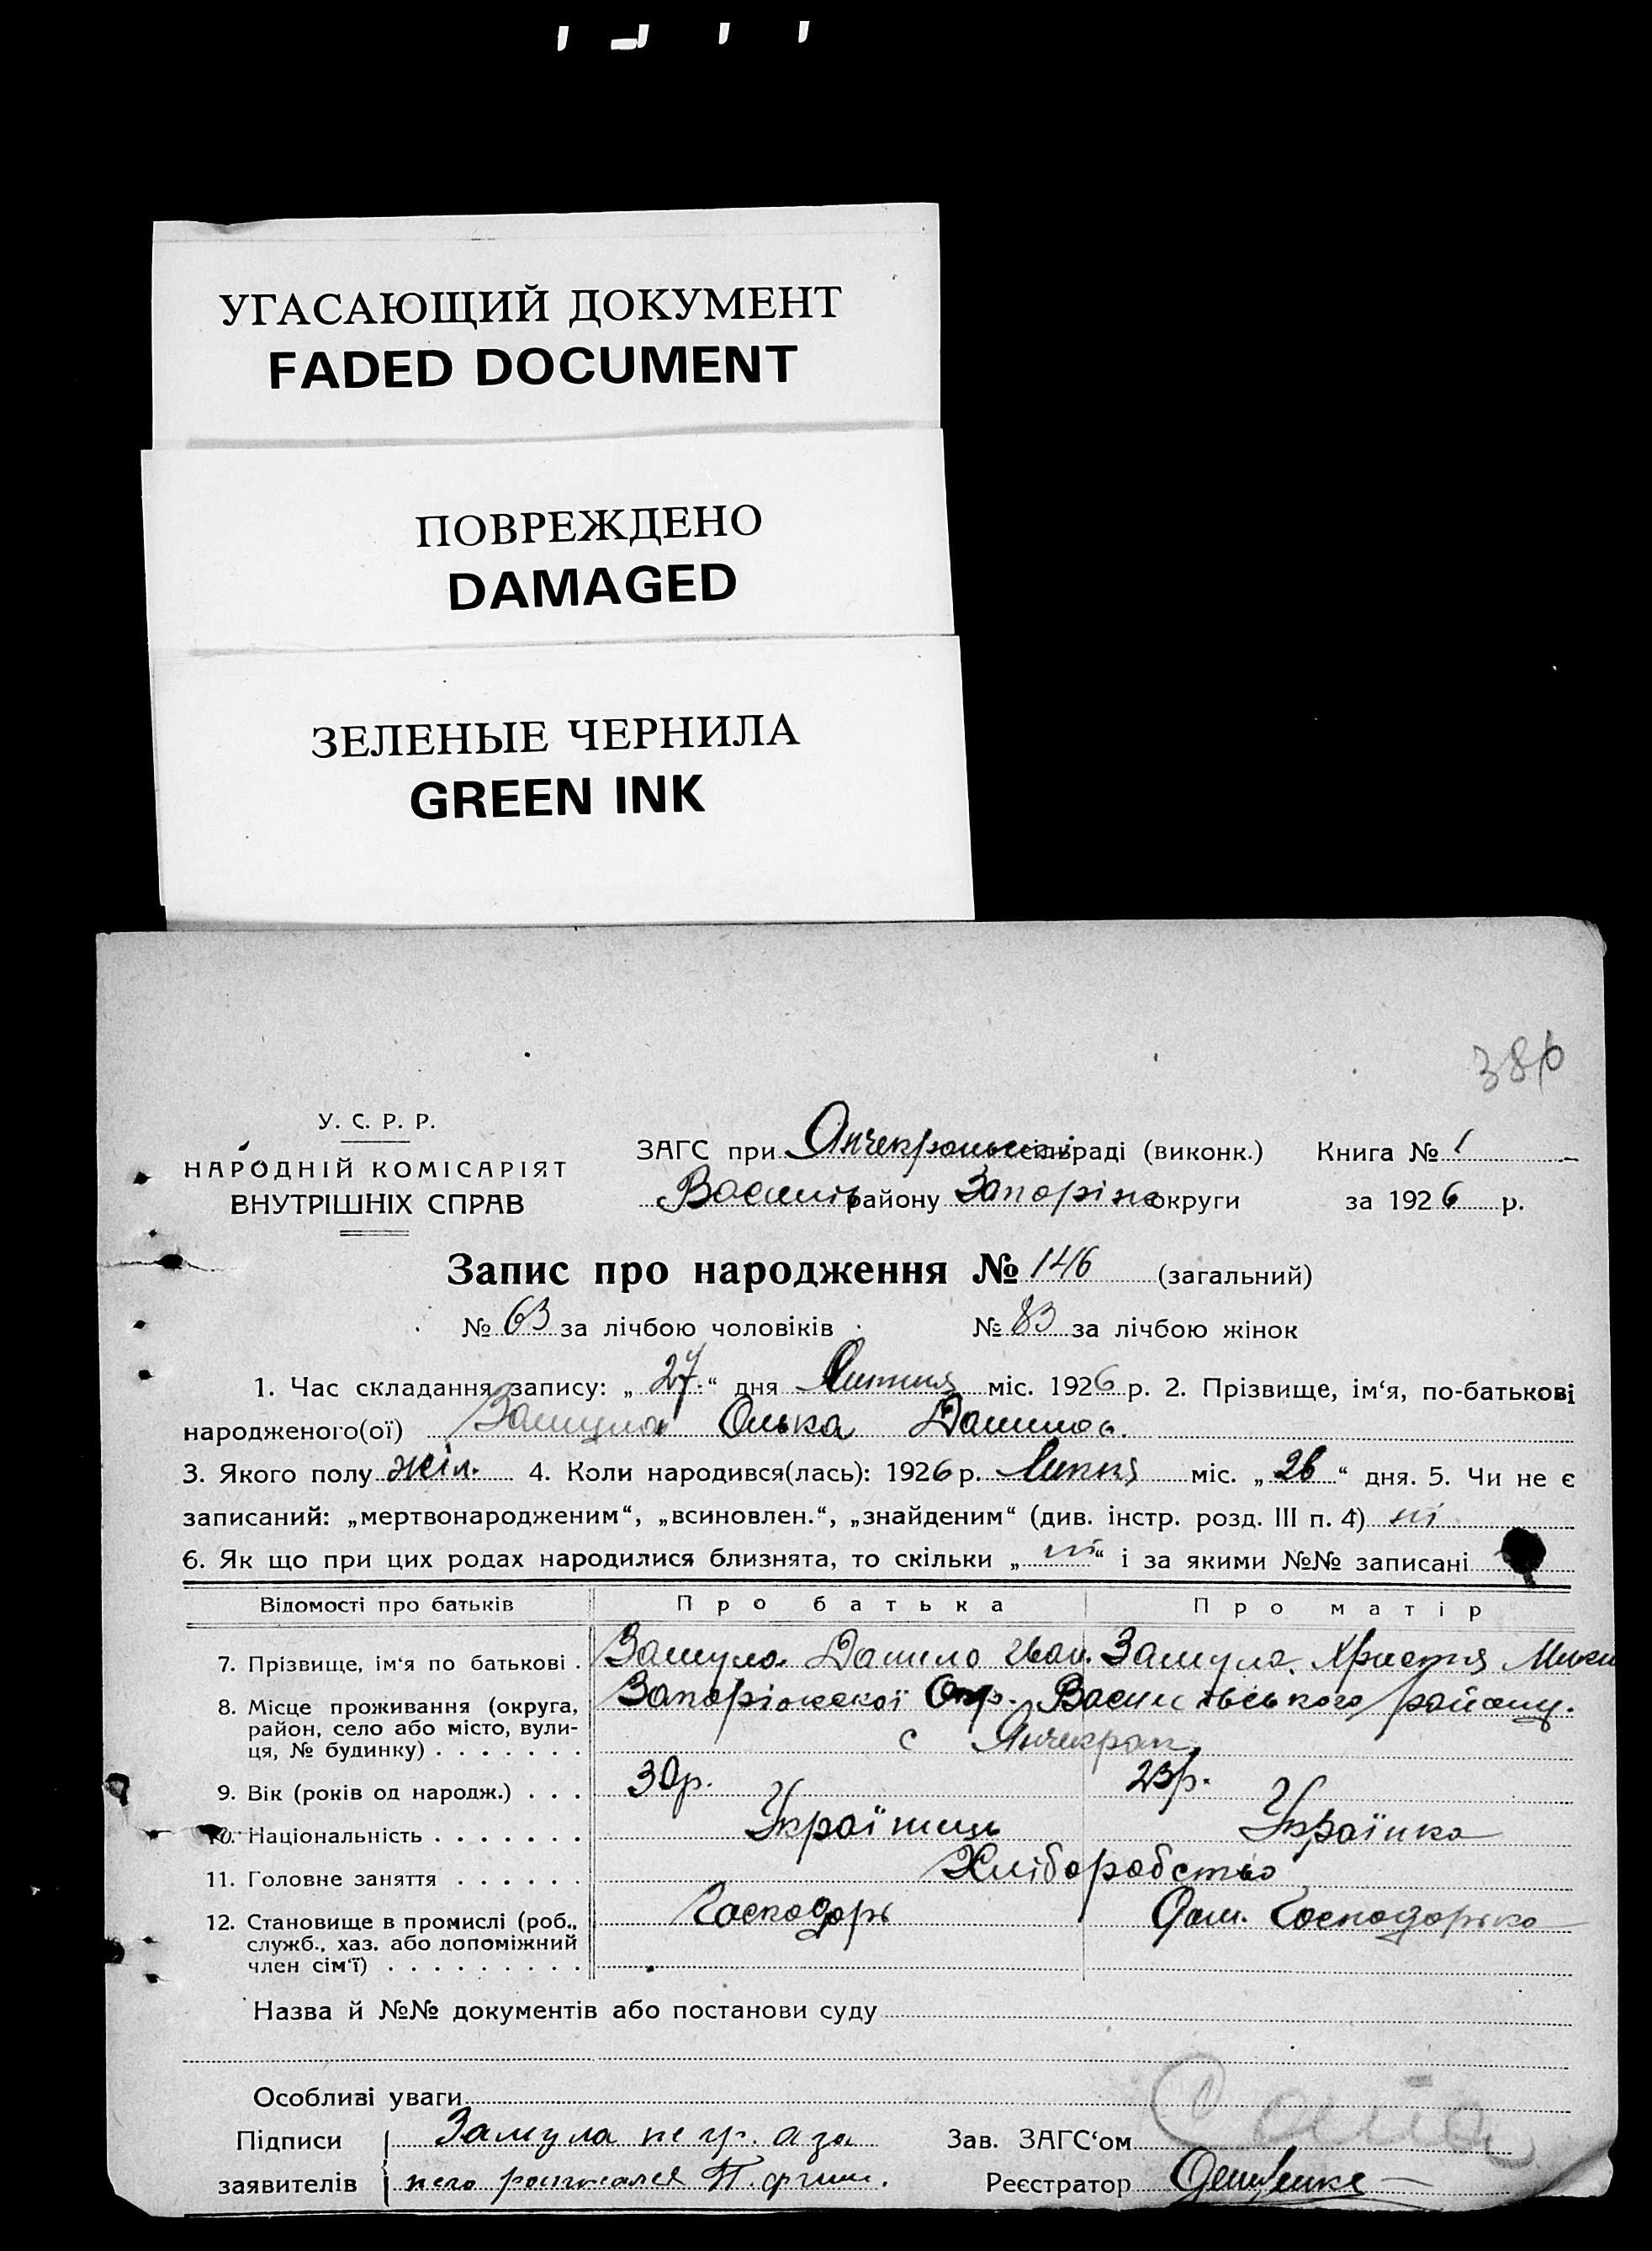 УГАСАЮЩИЙ ДОКУМЕНТ
FADED DOCUMENT
ПОВРЕЖДЕНО
DAMAGED
ЗЕЛЕНЫЕ ЧЕРНИЛА
GREEN INK
386
У. С. Р. Р.
НАРОДНІЙ КОМІСАРІЯТ
ВНУТРІШНІХ СПРАВ
ЗАГС при Янчекрацькій сільраді (виконк.) Книга № 1
Васил району Запоріж округи за 1926 р.
Запис про народження № 146 (загальний)
№ 63 за лічбою чоловіків № 83 за лічбою жінок
1. Час складання запису: „ 27 “ дня Липня міс. 1926 р. 2. Прізвище, ім‘я, по-батькові
народженого(ої) Замула Олька Данилов.
3. Якого полу жін. 4. Коли народився(лась): 1926 р. Липня міс. „ 26 “ дня. 5. Чи не є
записаний: „мертвонародженим“, „всиновлен.“, „знайденим“ (див. інстр. розд. III п. 4) ні
6. Як що при цих родах народилися близнята, то скільки „ ні “ і за якими №№ записані
Відомості про батьків Про батька Про матір
7. Прізвище, ім‘я по батькові . Замула Данило Іван. Замула Христя Мики
8. Місце проживання (округа, Запоріжської Окр. Василівського району.
район, село або місто, вули-
ця, № будинку) . . . . . . . с Янчекрак
9. Вік (років од народж.) . . . 30р. 23р.
10. Національність . . . . . . . Українець Українка
11. Головне заняття . . . . . . Хліборобство
12. Становище в промислі (роб., Господарь Дом. Господарька
служб., хаз. або допоміжний
член сім‘ї) . . . . . . . . .
Назва й №№ документів або постанови суду
Особливі уваги
Підписи Замула негр. а за Зав. ЗАГС‘ом
заявителів него росписался Реєстратор